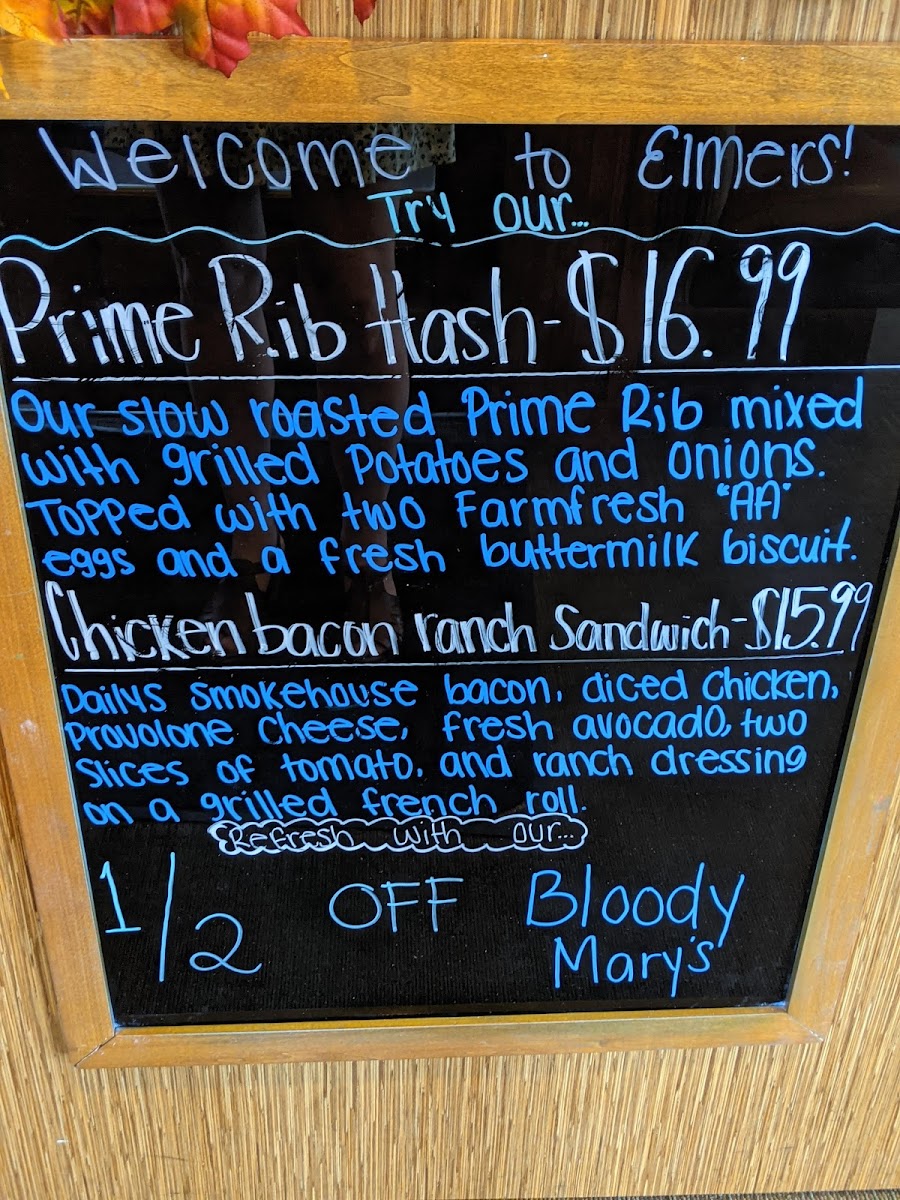 Welcome to Elmers!
Try our...
Prime Rib Hash - $16.99
Our slow roasted Prime Rib mixed
with grilled Potatoes and onions.
Topped with two Farmfresh "AA"
eggs and a fresh buttermilk biscuit.
Chicken bacon ranch Sandwich - $15.99
Dailys smokehouse bacon, diced chicken,
Provolone Cheese, fresh avocado, two
slices of tomato, and ranch dressing
on a grilled french roll.
Refresh with our...
1/2 OFF Bloody
Mary's